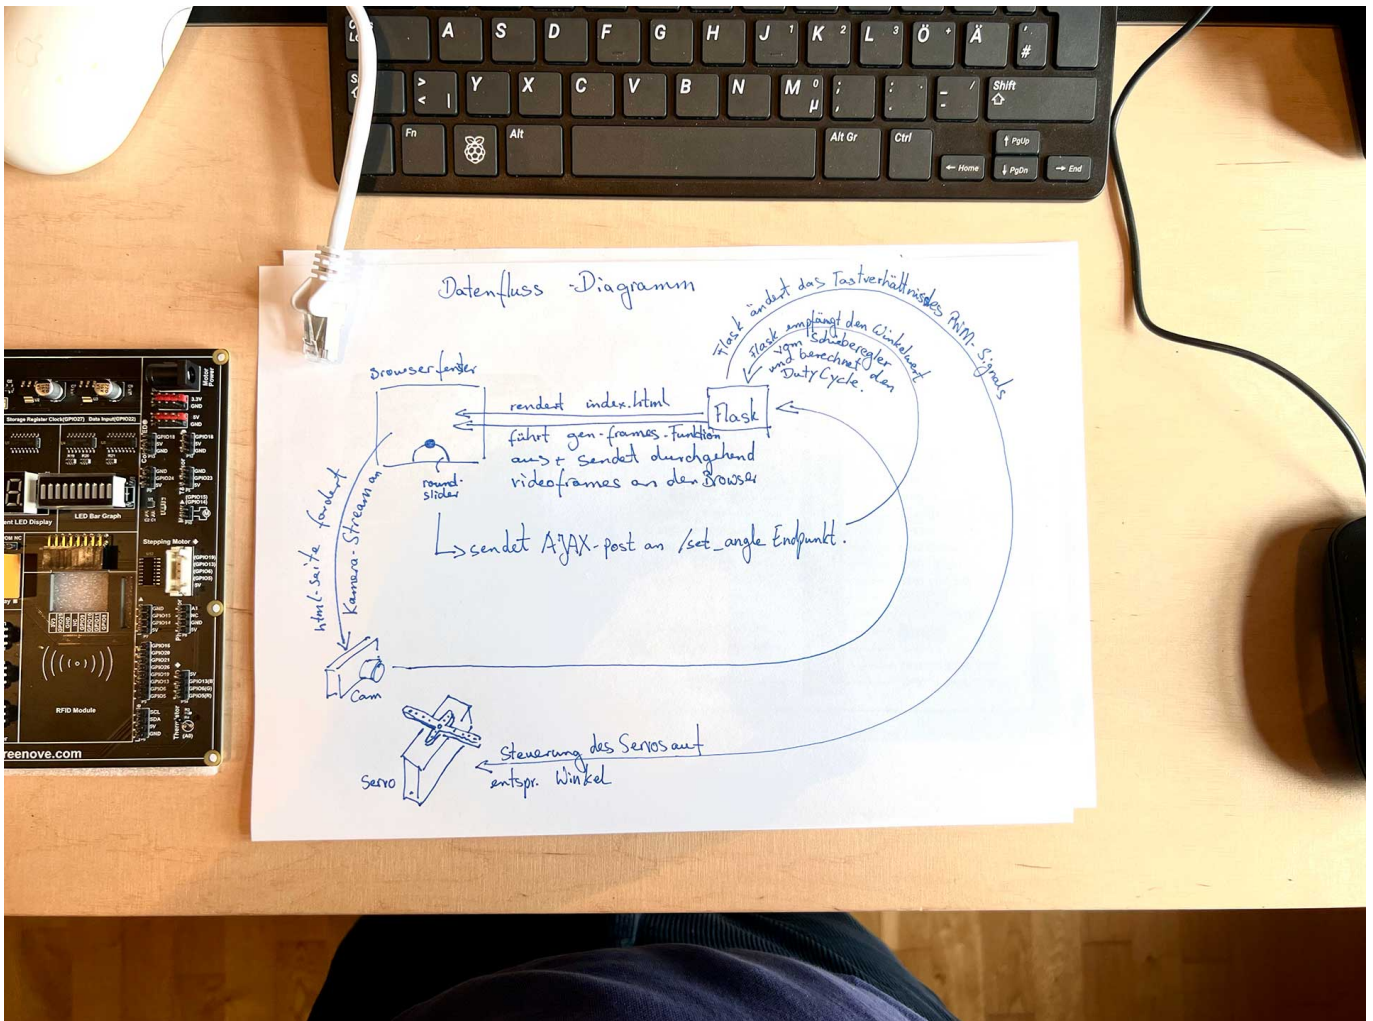 A S D F G H J 1 K 2 L 3 Ö + Ä ' #
> < | Y X C V B N M 0 µ ; , : . _ / - Shift
Fn Alt Alt Gr Ctrl ↑ PgUp
← Home ↓ PgDn → End
Datenfluss-Diagramm
Flask ändert das Tastverhältnis des PWM-Signals
Flask empfängt den Winkelwert
vom Schieberegler
und berechnet den
DutyCycle.
Browserfenster
Flask
rendert index.html
führt gen-frames-Funktion
aus + sendet durchgehend
videoframes an den Browser
round-
slider
sendet AJAX-post an /set_angle Endpunkt.
html-seite fordert
Kamera-Stream an
Cam
Servo
Steuerung des Servos auf
entspr. Winkel
Motor
Power
3.3V
GND
5V
GND
Storage Register Clock(GPIO27) Data Input(GPIO22)
GPIO18
5V
GND
LED Bar Graph
ent LED Display
Stepping Motor
RFID Module
SCL
SDA
5V
GND
reenove.com